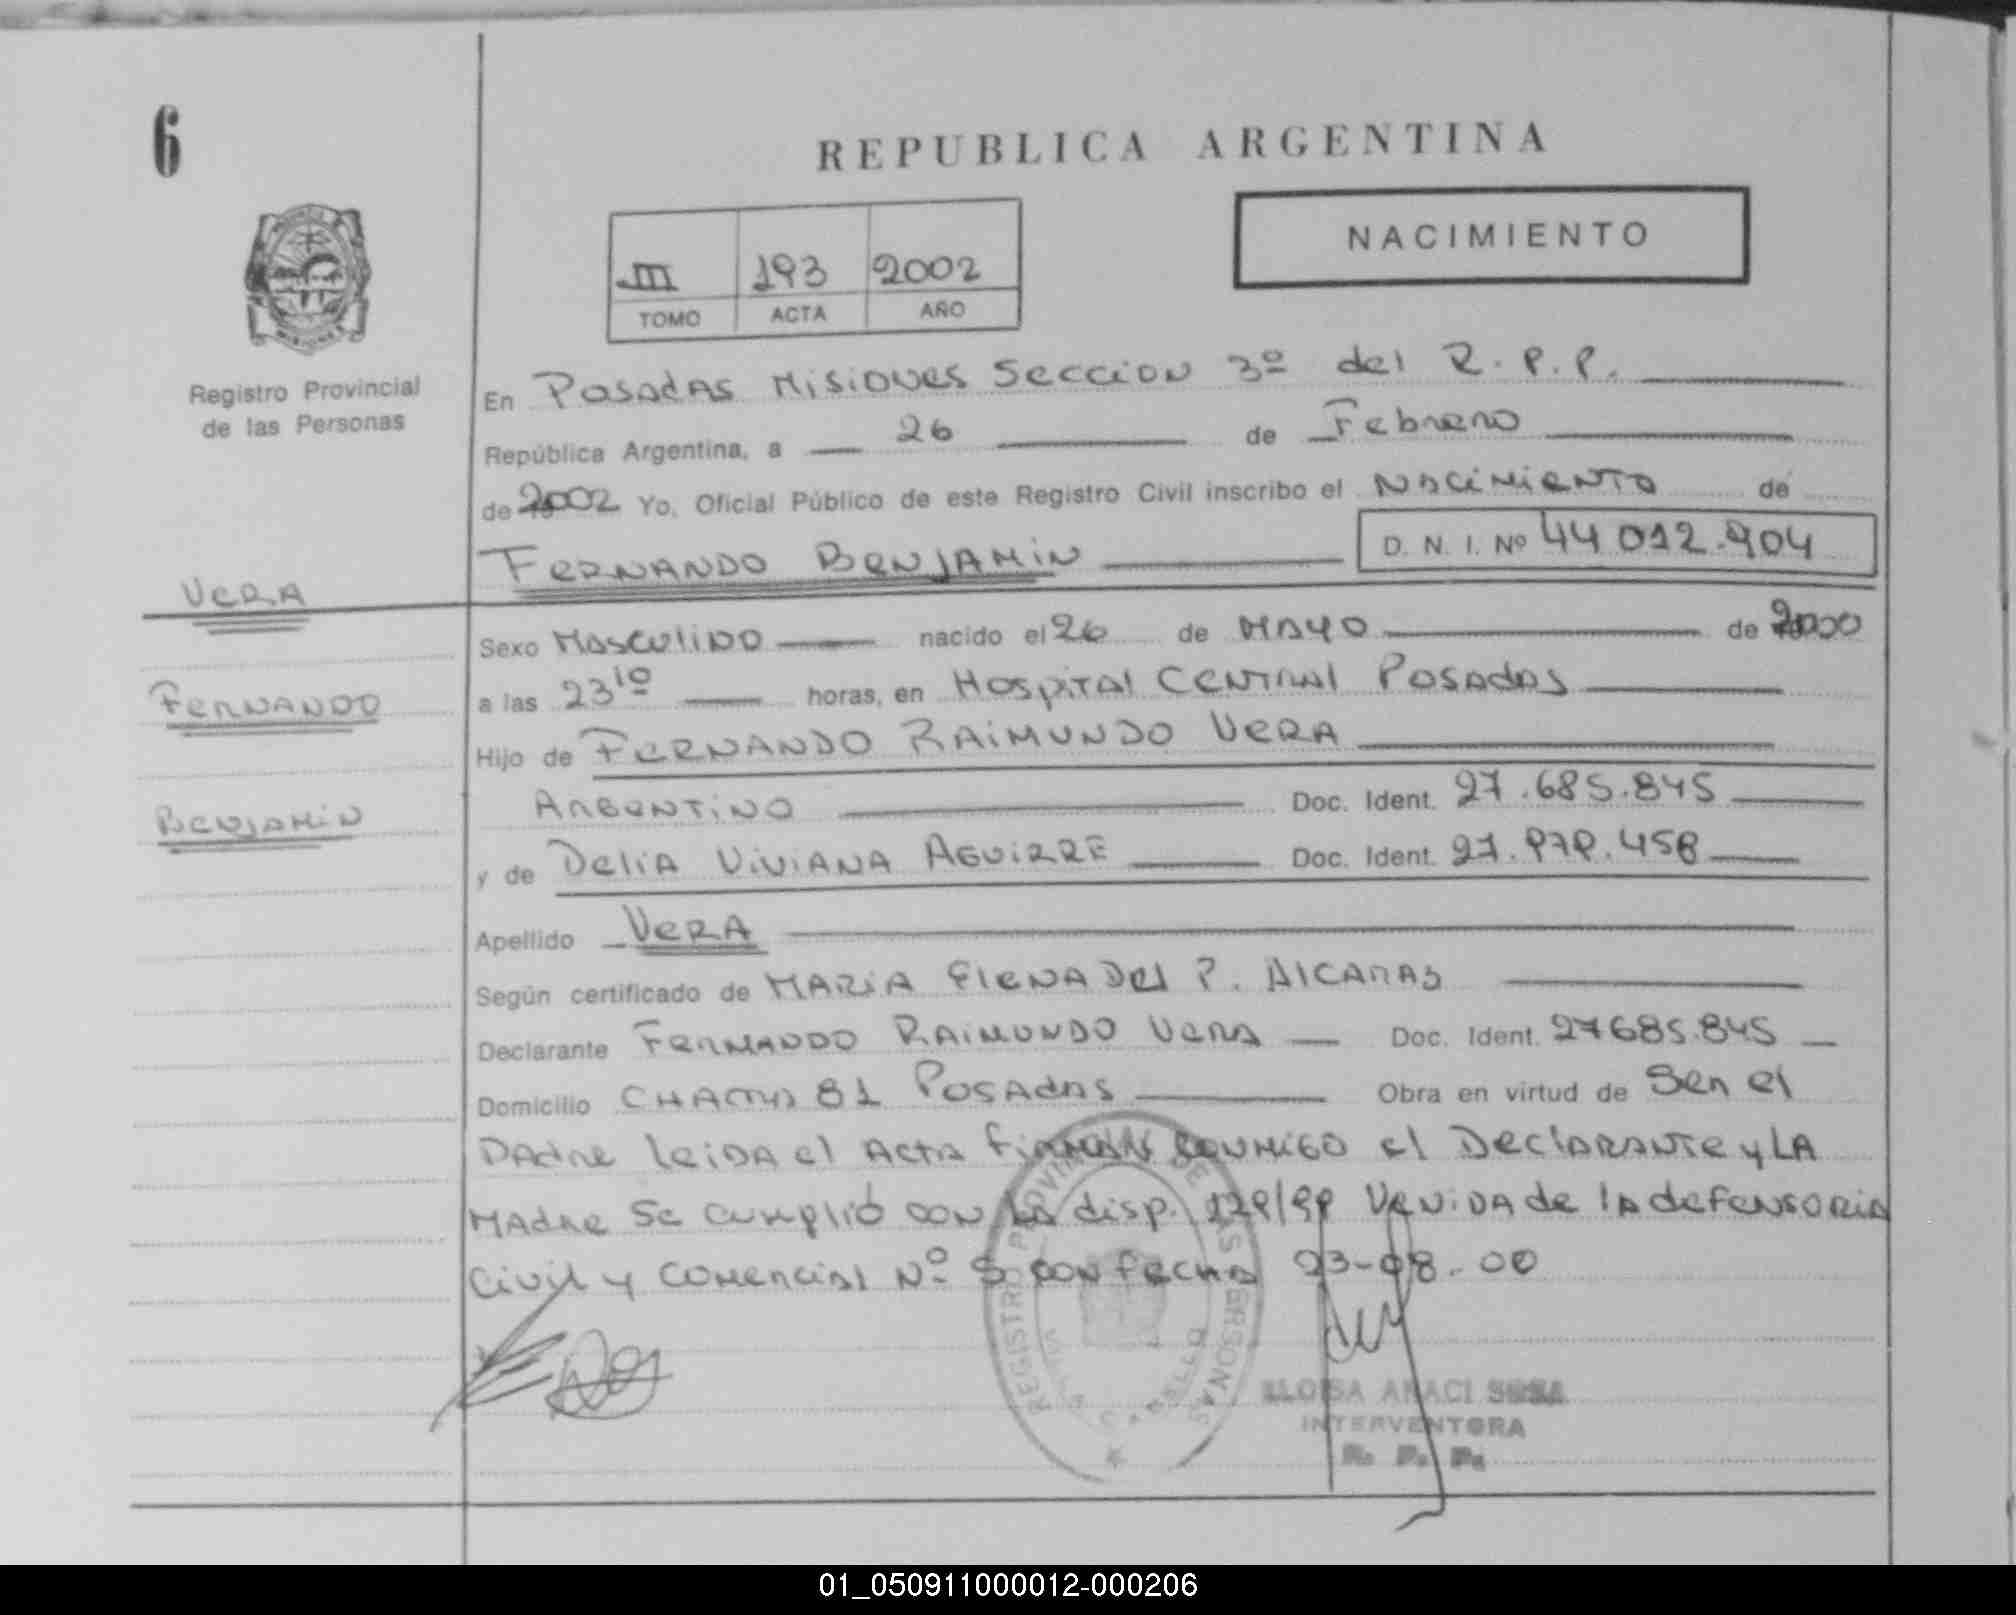 6
REPUBLICA ARGENTINA
NACIMIENTO
III 193 2002
TOMO ACTA AÑO
MISIONES
Registro Provincial
de las Personas
En Posadas Misiones Seccion 3º del R.P.P.
República Argentina, a 26 de Febrero
de 2002 Yo, Oficial Público de este Registro Civil inscribo el Nacimiento de
FERNANDO BENJAMIN D. N. I. Nº 44 012.904
VERA
Sexo Masculino nacido el 26 de MAYO de 2000
FERNANDO
a las 23 10 horas, en Hospital Central Posadas
Hijo de FERNANDO RAIMUNDO VERA
BENJAMIN
Argentino Doc. Ident. 27.685.845
y de Delia VIVIANA AGUIRRE Doc. Ident. 27.979.458
Apellido VERA
Según certificado de MARIA ElENA Del P. Alcaras
Declarante FERNANDO RAIMUNDO VERA Doc. Ident. 27685.845
Domicilio 81 Posadas Obra en virtud de Ser el
Padre leida el Acta firman conmigo el Declarante y LA
Madre Se cumplió con la disp. 129/99 Venida de la defensoria
Civil y Comercial Nº 5 con fecha 23-08-00
REGISTRO PROVINCIAL DE LAS PERSONAS
ELOISA ARACI SOSA
INTERVENTORA
R. P. P.
01_050911000012-000206